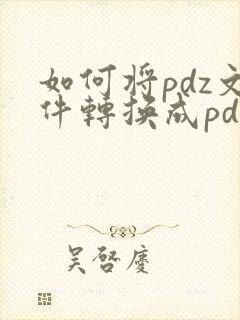 如何将pdz文
件轉換成pd
吴啓慶